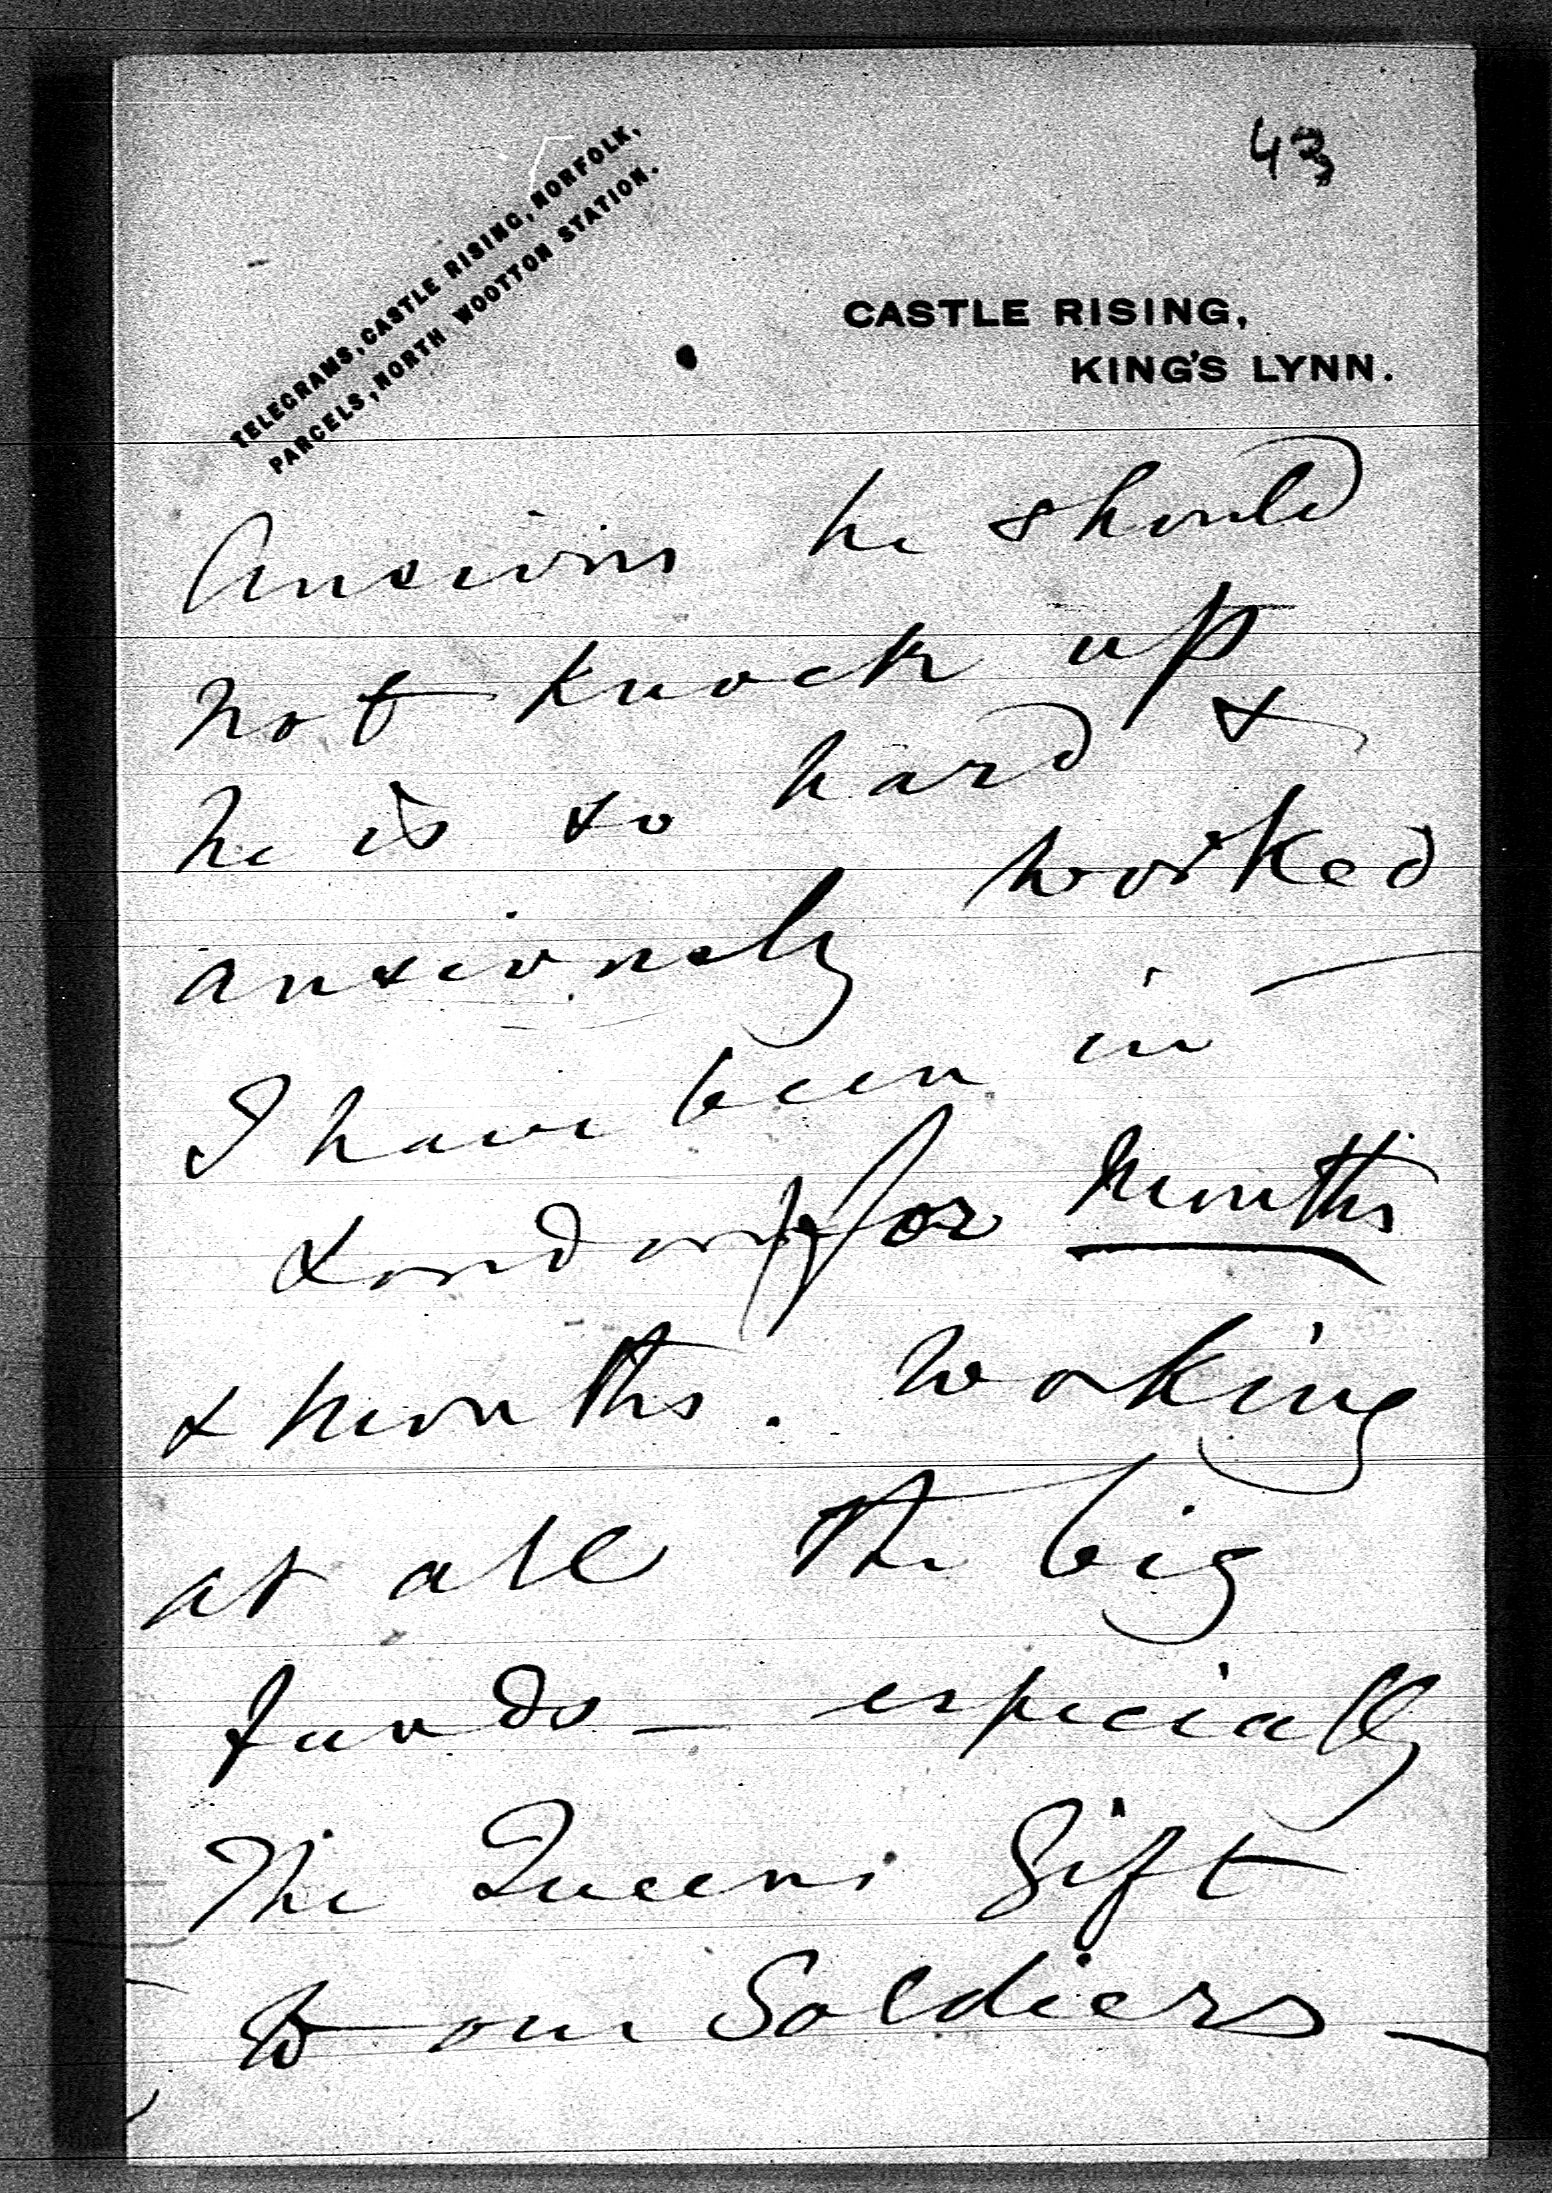 43
TELEGRAMS, CASTLE RISING, NORFOLK,
PARCELS, NORTH WOOTTON STATION.
CASTLE RISING,
KING'S LYNN.
Anxious he should
not knock up
he is so hard &
anxiously worked —
I have been in
London for months
& months. working
at all the big
funds — especially
The Queens Gift
to our Soldiers —